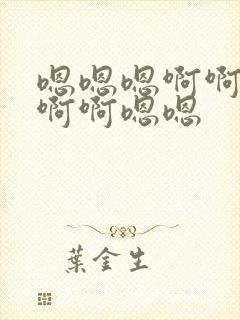 嗯嗯嗯啊啊
啊啊嗯嗯
葉金生